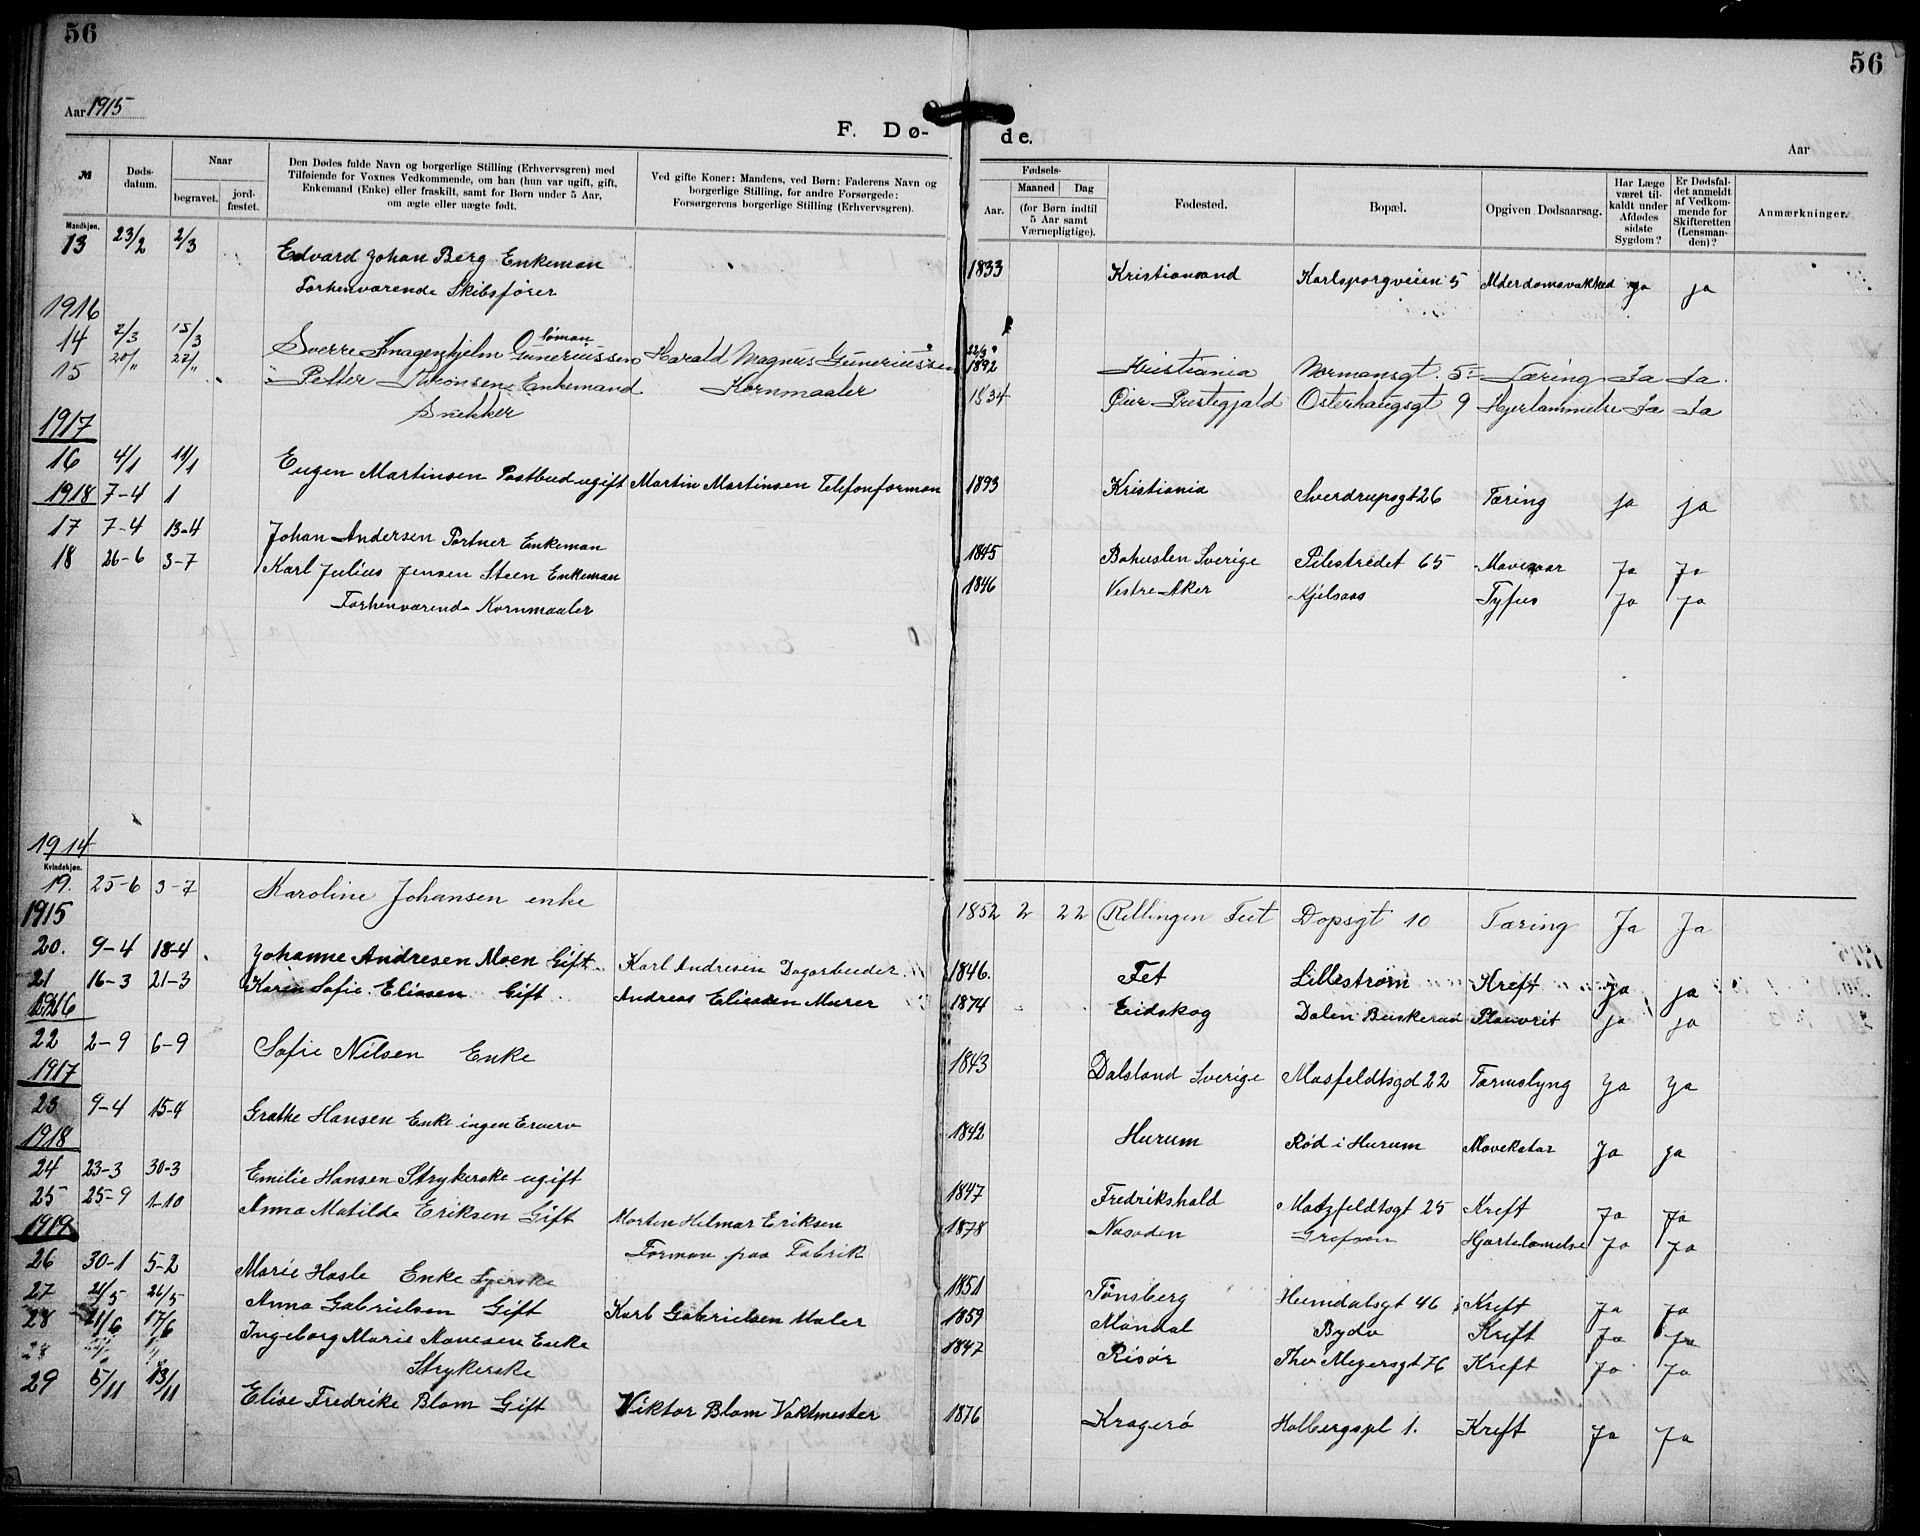 56
56
Aar 1915
F. Dø-
de.
Aar
№
Døds-
datum.
Naar
begravet.
jord-
fæstet.
Den Dødes fulde Navn og borgerlige Stilling (Erhvervsgren) med
Tilføiende for Voxnes Vedkommende, om han (hun var ugift, gift,
Enkemand (Enke) eller fraskilt, samt for Børn under 5 Aar,
om ægte eller uægte født.
Ved gifte Koner: Mandens, ved Børn: Faderens Navn og
borgerlige Stilling, for andre Forsørgede:
Forsørgerens borgerlige Stilling (Erhvervsgren).
Fødsels-
Aar.
Maaned
Dag
(for Børn indtil
5 Aar samt
Værnepligtige).
Fødested.
Bopæl.
Opgiven Dødsaarsag.
Har Læge
været til-
kaldt under
Afdødes
sidste
Sygdom?
Er Dødsfal-
det anmeldt
af Vedkom-
mende for
Skifteretten
(Lensman-
den)?
Anmærkninger.
Mandkjøn.
13 23/2 2/3 Edvard Johan Berg Enkeman 1833 Kristiansand Karlsborgveien 5 Alderdomsvakhed Ja Ja
Forhenværende Skibsfører
1916
14 2/3 15/3 Sverre Knagenhjelm Guneriussen Søman Harald Magnus Guneriussen 22/3 1892 Kristiania Normansgt. 5 Tæring Ja Ja.
15 20/" 22/" Petter Aronsen Enkemand Kornmaaler 1834 Øier Prestegjald Osterhaugsgt 9 Hjertlammelse Ja Ja
Snekker
1917
16 4/1 11/1 Eugen Martinsen Postbud ugift Martin Martinsen Telefonforman 1893 Kristiania Sverdrupsgt 26 Tæring Ja Ja
1918 7-4 1
17 7-4 13-4 Johan Andersen Portner Enkeman 1845 Bohuslen Sverige Pilestredet 65 Mavesaar Ja Ja
18 26-6 3-7 Karl Julius Jensen Steen Enkeman 1846 Vestre Aker Kjelsaas Tyfus Ja Ja
Forhenværend- Kornmaaler
1914
Kvindekjøn.
19. 25-6 3-7 Karoline Johansen enke 1852 2 22 Rellingen Feet Dopsgt 10 Tæring Ja Ja
1915
20. 9-4 18-4 Johanne Andresen Moen Gift. Karl Andresen Dagarbeider. 1846. Fet Lillestrøm Kreft Ja Ja
21 16-3 21-3 Karin Sofie. Eliasen Gift Andreas Eliasen Murer 1874 Eidskog Dalen Buskerud Plauvrit Ja Ja
1916
22 2-9 6-9 Sofie Nilsen Enke 1843 Dalsland Sverige Masfeldtsgd 22 Tarmslyng Ja Ja
1917
23 9-4 15-4 Grethe Hansen Enke ingen Erverv 1842 Hurum Rød i Hurum Mavekatar Ja Ja
1918
24 23-3 30-3 Emilie Hansen Strykerske ugift 1847 Fredrikshald Motzfeldtsgt 25 Kreft Ja Ja
25 25-9 1-10 Anna Matilda Eriksen Gift Morten Hilmar Eriksen 1878 Nesodden Grefsen Hjærtelamelse Ja Ja
1919 Forman paa Fabrik
26 30-1 5-2 Marie Hasle Enke Syerske 1851 Tønsberg Heimdalsgt 46 Kreft Ja Ja
27 21/5 26/5 Anna Gabrielsen Gift Karl Gabrielsen Maler 1859 Mandal Bydø Kreft Ja Ja
28 11/6 17/6 Ingeborg Marie Enke 1847 Risør Thv Meyersgt 76 Kreft Ja Ja
28 Strykerske
29 5/11 13/11 Elise Fredrike Blom Gift Viktor Blom Vaktmester 1876 Kragerø Holbergspl 1. Kreft Ja Ja